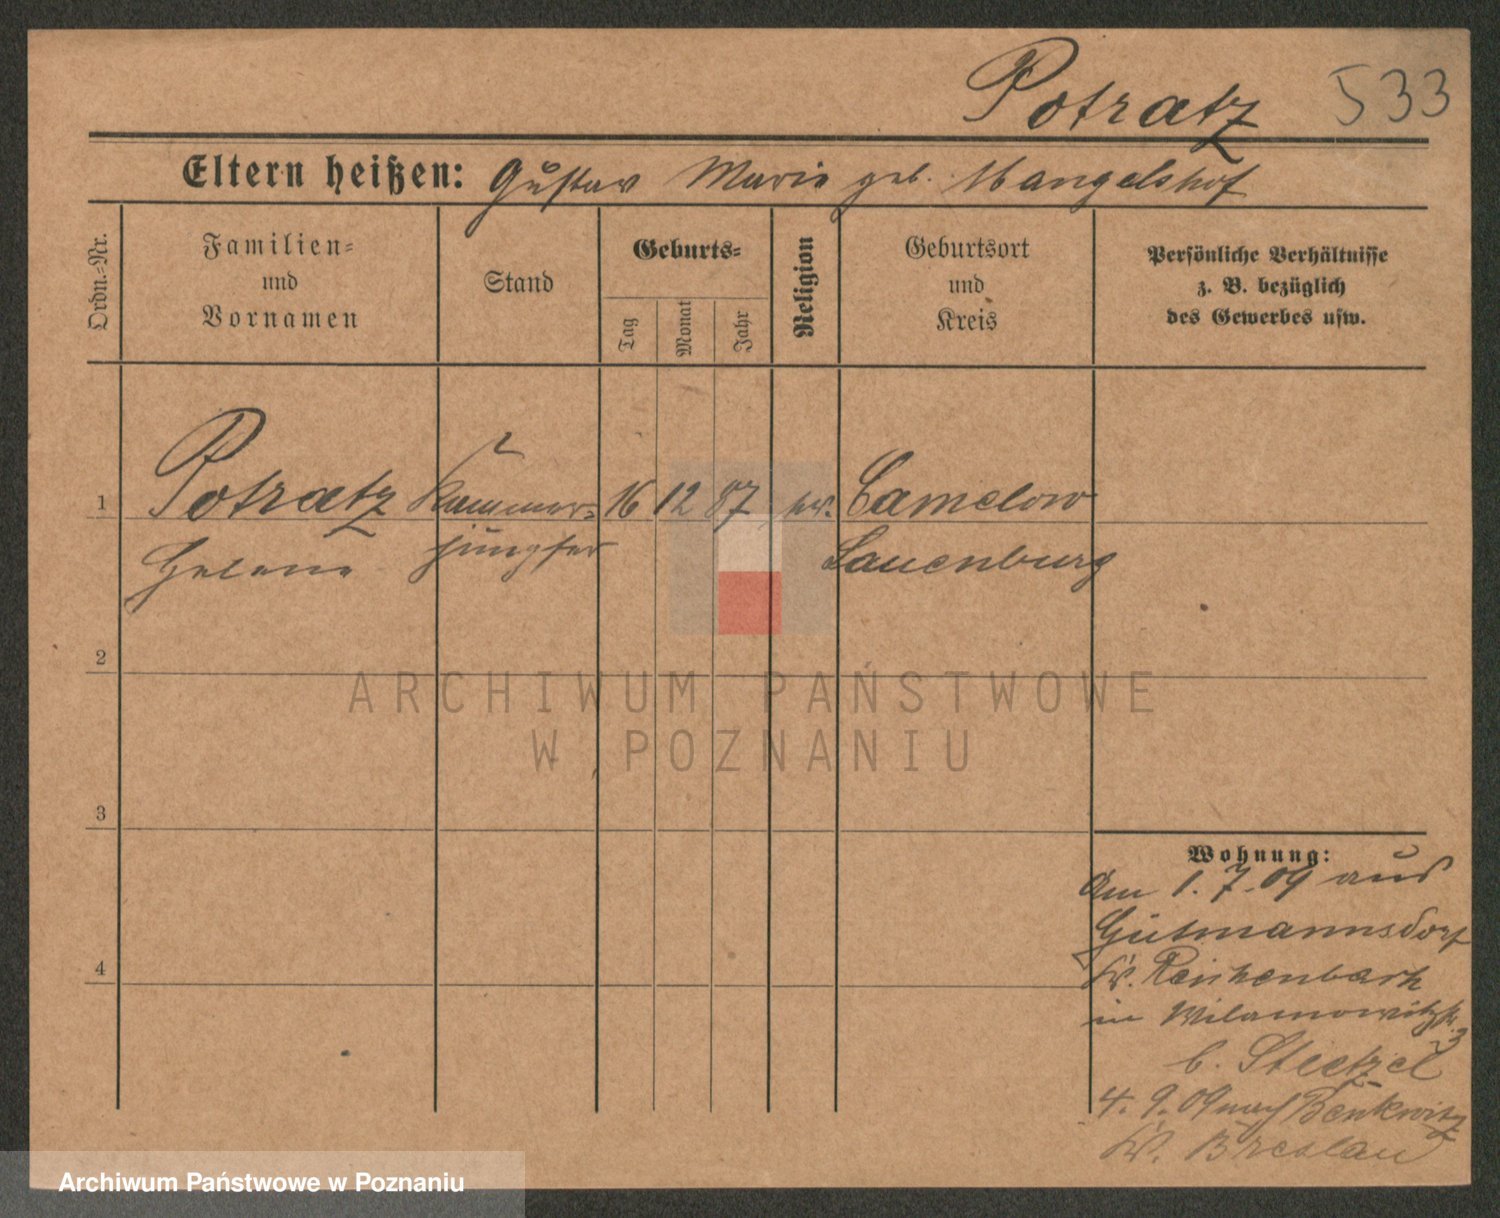 Potratz 533
Eltern heißen: Gustav Marie geb. Mangelshof
Ordn.-Nr.
Familien-
und
Vornamen
Stand
Geburts-
Tag
Monat
Jahr
Religion
Geburtsort
und
Kreis
Persönliche Verhältnisse
z. B. bezüglich
des Gewerbes usw.
1 Potratz Kammer- 16 12 87 ev. Camelow
Helene jungfer Lauenburg
2
3
4
Wohnung:
Am 1. 7. 09 aus
Gutmannsdorf
Kr. Reichenbach
in Wilamowitzstr. 3
b. Stietzel
4. 9. 09 nach Benkwitz
Kr. Breslau
ARCHIWUM PAŃSTWOWE
W POZNANIU
Archiwum Państwowe w Poznaniu